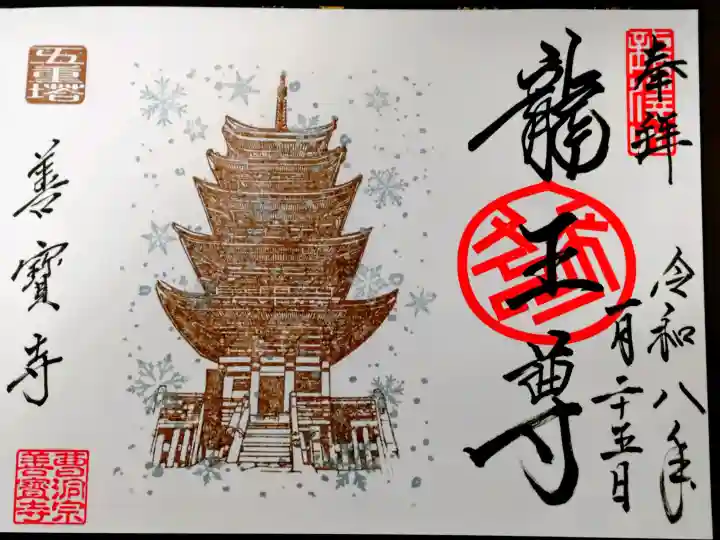 奉拝
令和八年
一月二十五日
龍王尊
五重塔
善寳寺
曹洞宗
善寳寺